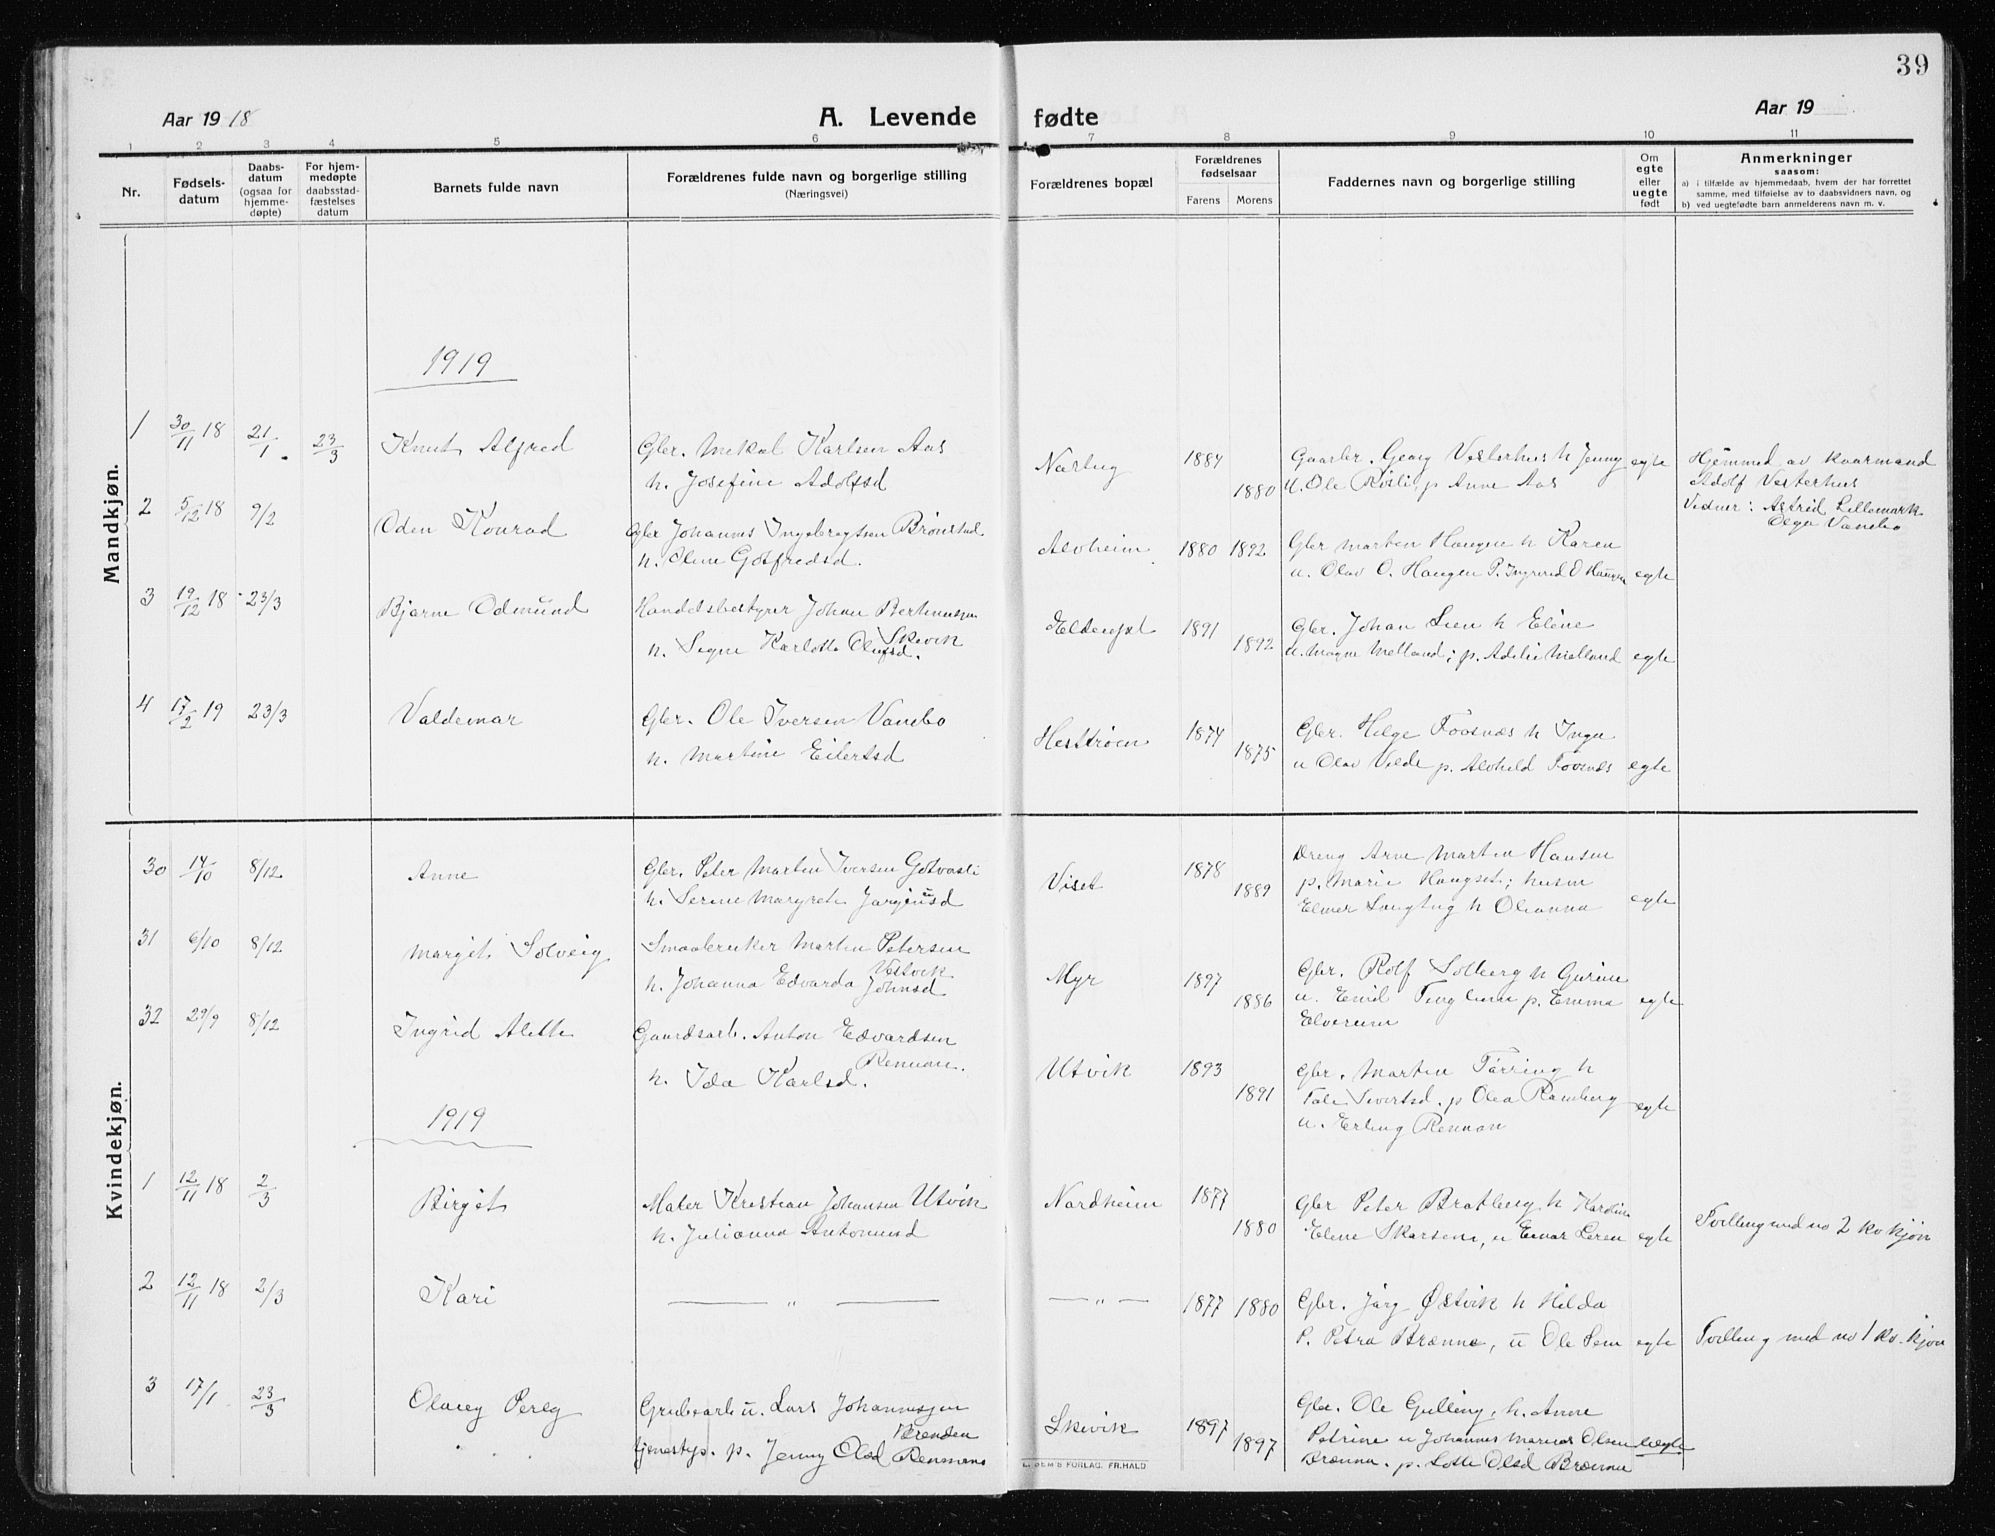 39
Aar 1918
A. Levende fødte
Aar 19
1 2 3 4 5 6 7 8 9 10 11
Nr.
Fødsels-
datum
Daabs-
datum
(ogsaa for
hjemme-
døpte)
For hjem-
medøpte
daabsstad-
fæstelses
datum
Barnets fulde navn
Forældrenes fulde navn og borgerlige stilling
(Næringsvei)
Forældrenes bopæl
Forældrenes
fødselsaar
Farens Morens
Faddernes navn og borgerlige stilling
Om
egte
eller
uegte
født
Anmerkninger
saasom:
a) i tilfælde av hjemmedaab, hvem der har forrettet
samme, med tilføielse av to daabsvidners navn, og
b) ved uegtefødte barn anmelderens navn m. v.
Mandkjøn.
1919
1 30/11 18 21/1. 23/3 Knut Alfred
Gbr. Mekal Karlsen Aas
h. Josefine Adolfsd
Nartug 1884 1880
Gaarbr. Georg Vesterhus h Jenny
u. Ole p Anne Aas
egte
Hjemmed av
Adolf Vesterhus
Vidner: Astrid Lillemark
Olga Vanebo
2 5/12 18 9/2 Oden Konrad
Gbr Johannes Ingebregtsen Brønstad
h. Oline Gotfredsd.
Alvheim 1880 1892
Gbr Marten Haugen h Karen
u. Olav O. Haugen P. Ingevid O Haugen
egte
3 19/12 18 23/3 Bjarne Odmund
Handelsbestyrer Johan
Skevik
h. Signe Karlotte Olufsd.
1891 1892
Gbr. Johan Lien h Eline
u. Magne Melland; p. Melland
egte
4 17/2 19 23/3 Valdemar
Gbr. Ole Iversen Vanebo
h. Martine Eilertsd
Hestrøen 1874 1875
Gbr. Helge Foosnæs h Inga
u Olav Velde p. Alvhild Foosnæs
egte
Kvindekjøn.
30 14/10 8/12 Anne
Gbr. Peter Marten Iversen Gotvasli
h. Serine Margrete Jørginusd
Viset 1878 1889
Dreng Arne Marten Hansen
p. Marie Haugset; husm
Elmer Langtug h Oleanna
egte
31 6/10 8/12 Margit Solveig
Smaabruker Marten Petersen
Vestvik
h. Johanna Edvarda Johnsd
Myr 1897 1886
Gbr. Rolf Solberg h Gurine
u. p. Emma
Elverum
egte
32 29/9 8/12 Ingrid Alette
Gaardsarb. Anton Edvardsen
Rennan.
h. Ida Karlsd.
Utvik 1893 1891
Gbr. Marten Tørring h
Tale Sivertsd. p Olea Ramberg
u. Erling Rennan
egte
1919
1 12/11 18 2/3 Birgit
Maler Kristian Johansen Utvik
h. Julianna Antonusd
Nordheim 1877 1880
Gbr Peter Bratberg h Karoline
Eline Skarsem, u Einar Leren
egte
Tvilling med no 2 kv kjøn
2 12/11 18 2/3 Kari
— " —
— " —
1877 1880
Gbr. Jørg Østvik h Hilda
P. Petra Brænne, u Ole Sem
egte
Tvilling med no 1 kv. kjøn
3 17/1. 23/3 Olaug Pereg
Grubearb u. Lars Johannesen
Brenden
tjenestep. p. Jenny Olsd Renmans
Skevik 1897 1897
Gbr. Ole Gulling, h. Anne
Petrine u Johannes Marius Olsen
Brænna. p. Lotte Olsd Brænna
uegte
FORLAG. FR.HALD